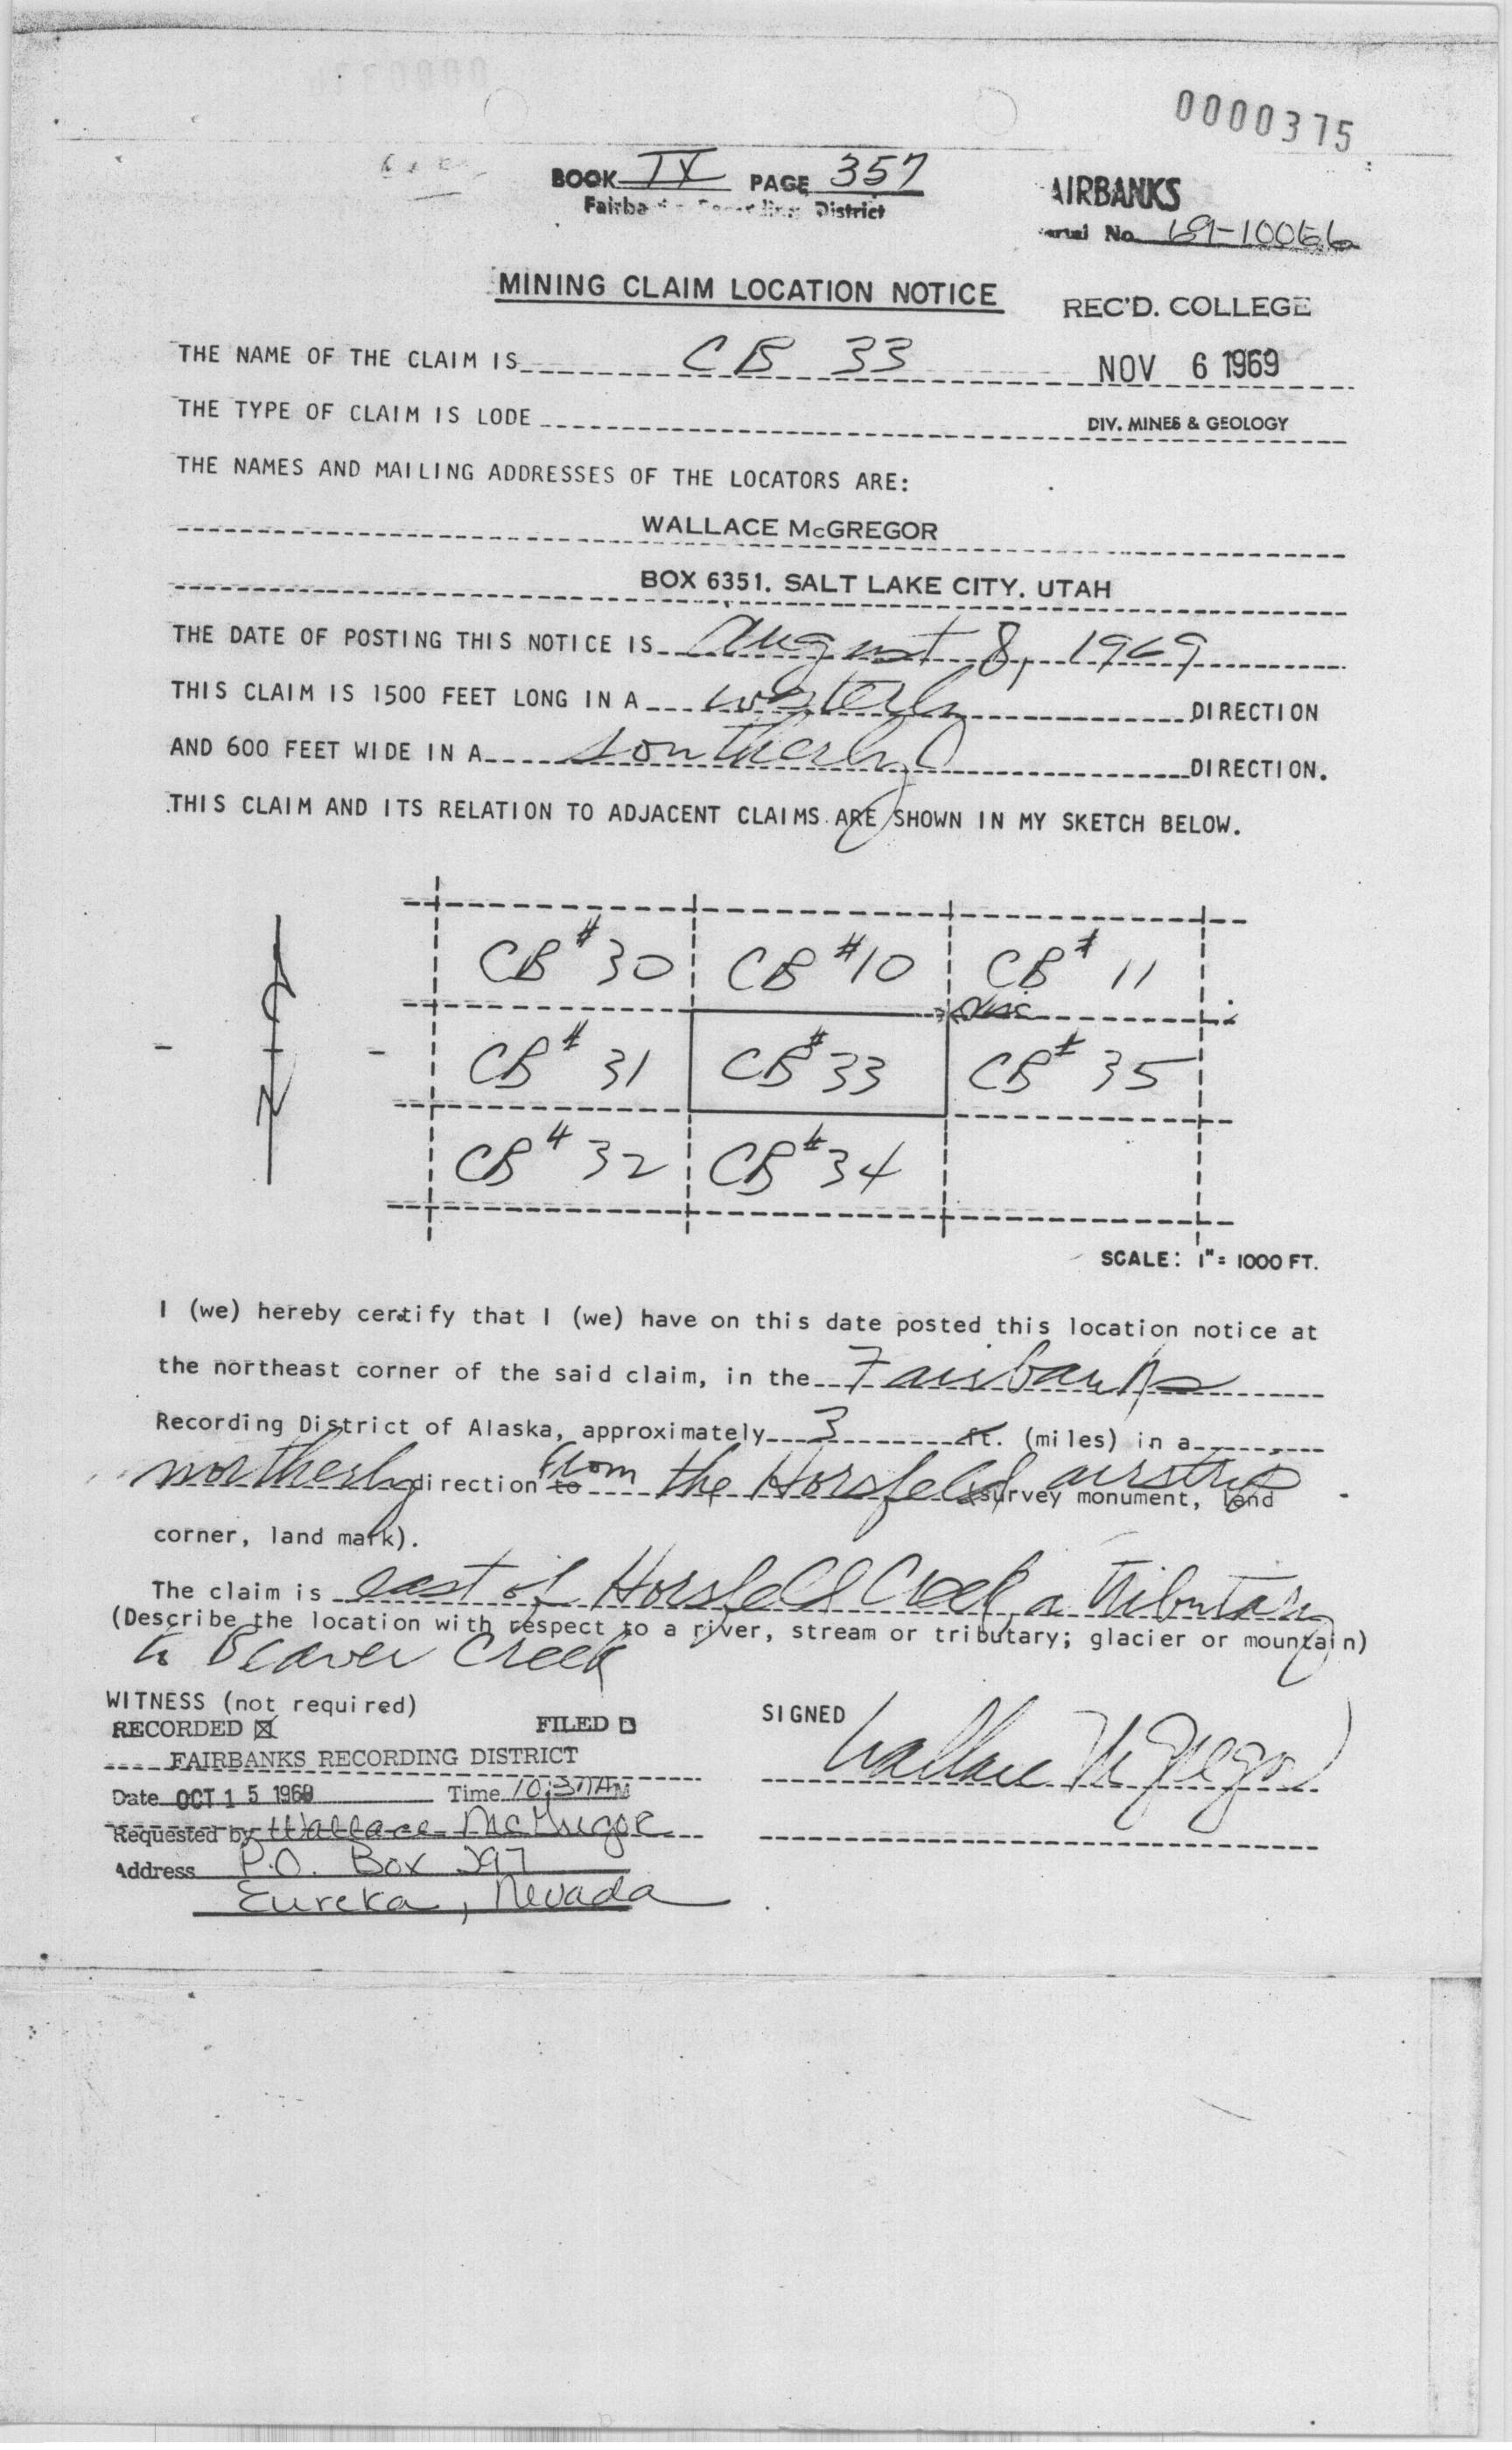 0000375
BOOK IX PAGE 357
Fairba District
AIRBANKS
No. 69-10066
MINING CLAIM LOCATION NOTICE
REC'D. COLLEGE
THE NAME OF THE CLAIM IS CB 33
NOV 6 1969
THE TYPE OF CLAIM IS LODE
DIV. MINES & GEOLOGY
THE NAMES AND MAILING ADDRESSES OF THE LOCATORS ARE:
WALLACE McGREGOR
BOX 6351. SALT LAKE CITY. UTAH
THE DATE OF POSTING THIS NOTICE IS August 8, 1969
THIS CLAIM IS 1500 FEET LONG IN A westerly DIRECTION
AND 600 FEET WIDE IN A southerly DIRECTION.
THIS CLAIM AND ITS RELATION TO ADJACENT CLAIMS ARE SHOWN IN MY SKETCH BELOW.
CB #30 CB #10 CB # 11
Disc
CB # 31 CB #33 CB # 35
N
CB # 32 CB #34
SCALE: 1"= 1000 FT.
I (we) hereby certify that I (we) have on this date posted this location notice at
the northeast corner of the said claim, in the Fairbanks
Recording District of Alaska, approximately 3 ft. (miles) in a
northerly direction to from the Horsfeld airstrip (survey monument, land
corner, land mark).
The claim is east of Horsfeld Creek, a tributary
(Describe the location with respect to a river, stream or tributary; glacier or mountain)
to Beaver Creek
WITNESS (not required)
SIGNED Wallace McGregor
RECORDED ☒ FILED ☐
FAIRBANKS RECORDING DISTRICT
Date OCT 15 1969 Time 10:37AM
Requested by Wallace McGregor
Address P.O. Box 297
Eureka, Nevada